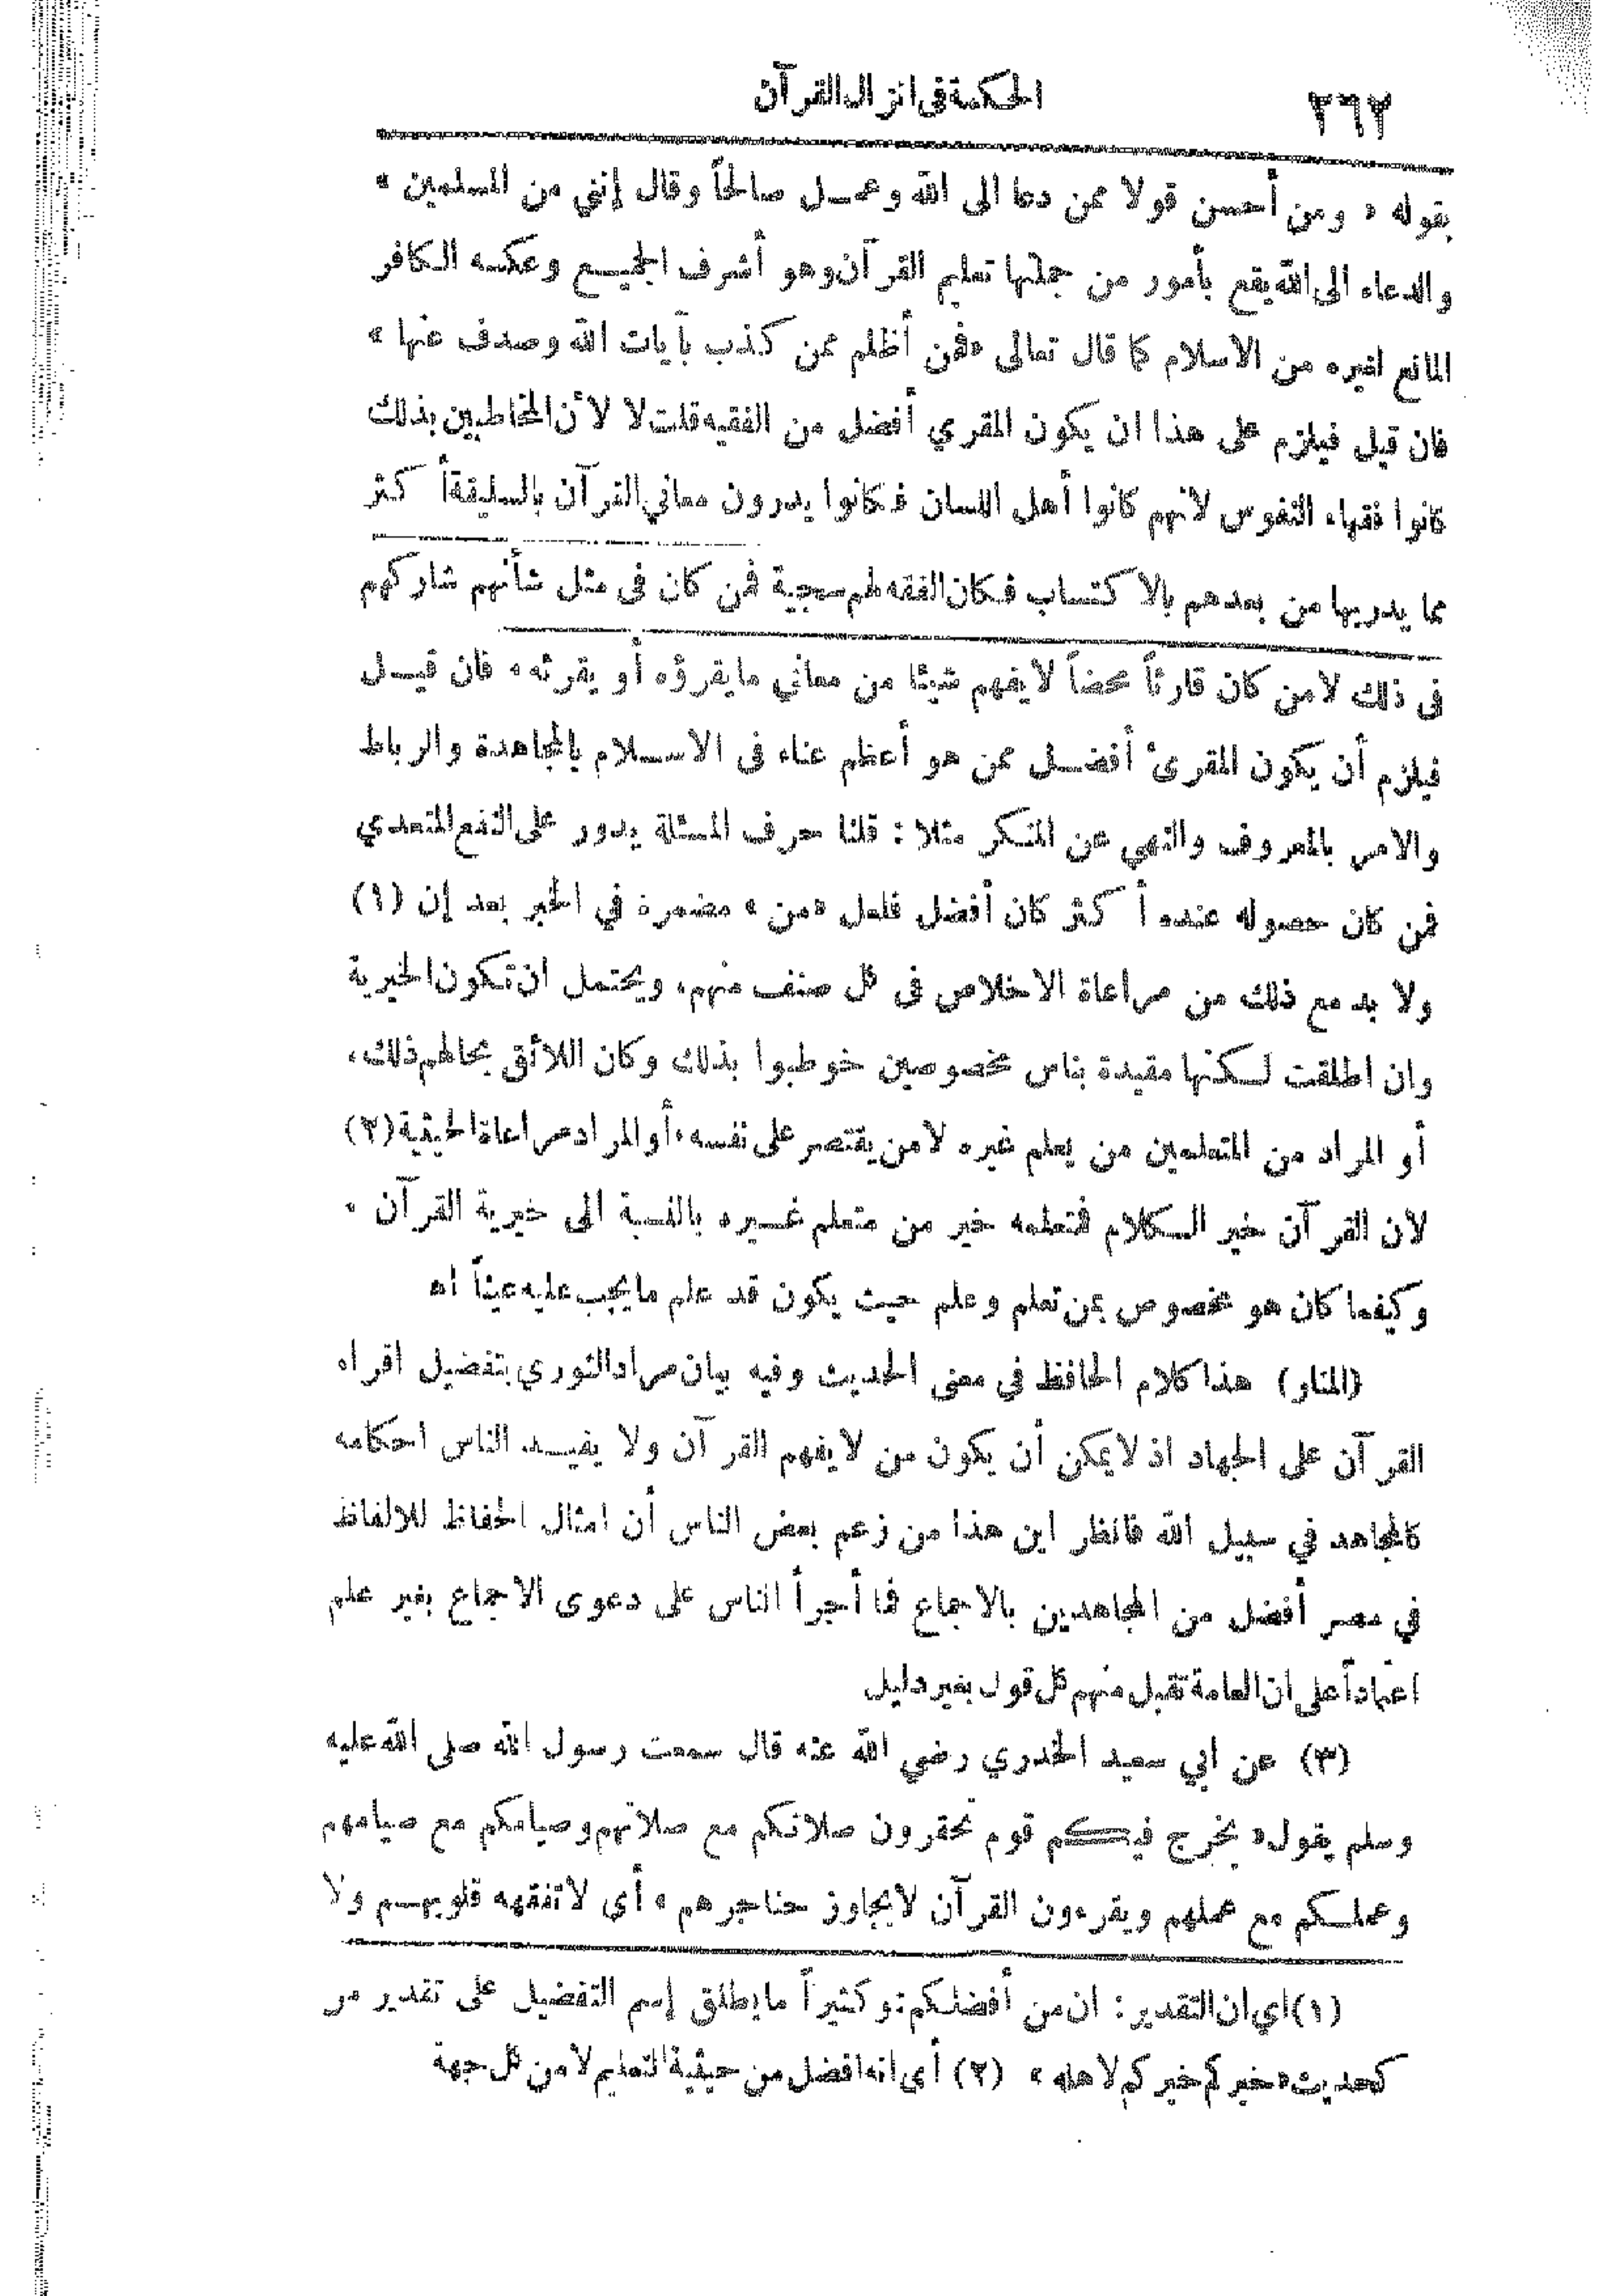 ٢٦٢
الحكمة في انزال القرآن
بقوله « ومن أحسن قولا ممن دعا الى الله وعمـل صالحاً وقال إنني من المسلمين »
والدعاء الى الله يقع بأمور من جملتها تعليم القرآن وهو أشرف الجميـع وعكسه الكافر
المانع لغيره من الاسلام كما قال تعالى «فمن أظلم ممن كذب بآيات الله وصدف عنها »
فان قيل فيلزم على هذا ان يكون المقري أفضل من الفقيه قلت لا لأن المخاطبين بذلك
كانوا فقهاء النفوس لانهم كانوا أهل اللسان فكانوا يدرون معاني القرآن بالسليقة أكثر
مما يدريها من بعدهم بالاكتساب فكان الفقه لهم سجية فمن كان في مثل شأنهم شاركهم
في ذلك لا من كان قارئاً محضاً لا يفهم شيئا من معاني ما يقرؤه أو يقرئه، فان قيـل
فيلزم أن يكون المقرئ أفضـل ممن هو أعظم عناء في الاسـلام بالمجاهدة والرباط
والامر بالمعروف والنهي عن المنكر مثلا : قلنا حرف المسئلة يدور على النفع المتعدي
فمن كان حصوله عنده أكثر كان أفضل فلعل «من » مضمرة في الخبر بعد إن (١)
ولا بد مع ذلك من مراعاة الاخلاص في كل صنف منهم، ويحتمل ان تكون الخيرية
وان اطلقت لـكنها مقيدة بناس مخصوصين خوطبوا بذلك وكان اللائق بحالهم ذلك،
أو المراد من المتعلمين من يعلم غيره لا من يقتصر على نفسه، أو المراد مراعاة الحيثية (٢)
لأن القرآن خير الـكلام فتعلمه خير من متعلم غـيره بالنسبة الى خيرية القرآن .
وكيفما كان هو مخصوص بمن تعلم وعلم حيث يكون قد علم ما يجب عليه عيناً اه
(المنار) هذا كلام الحافظ في معنى الحديث وفيه بيان مراد الثوري بتفضيل اقراء
القرآن على الجهاد اذ لا يمكن أن يكون من لا يفهم القرآن ولا يفيـد الناس احكامه
كالمجاهد في سبيل الله فانظر اين هذا من زعم بعض الناس أن امثال الحفاظ للالفاظ
في مصر أفضل من المجاهدين بالاجماع فما أجرأ الناس على دعوى الاجماع بغير علم
اعتماداً على ان العامة تقبل منهم كل قول بغير دليل
(٣) عن ابي سعيد الخدري رضي الله عنه قال سمعت رسول الله صلى الله عليه
وسلم يقول« يخرج فيـكم قوم تحقرون صلاتكم مع صلاتهم وصيامكم مع صيامهم
وعملـكم مع عملهم ويقرءون القرآن لا يجاوز حناجرهم » أي لا تفقهه قلوبهـم ولا
(١) اي ان التقدير : ان من أفضلـكم: وكثيراً ما يطلق إسم التفضيل على تقدير من
كحديث «خيركم خيركم لاهله » (٢) أي انه افضل من حيثية التعليم لا من كل جهة